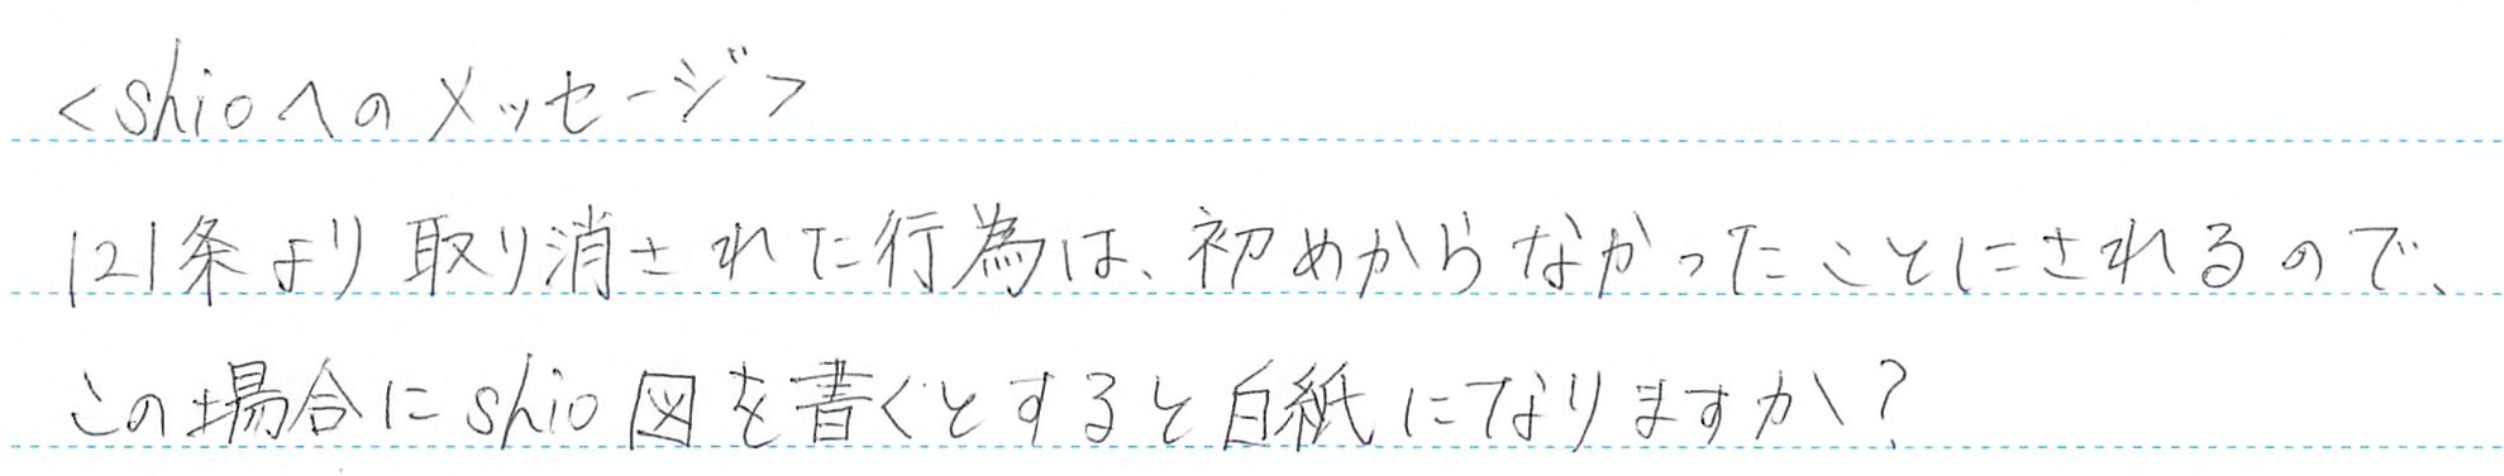 <shioへのメッセージ>
121条より取り消された行為は、初めからなかったことにされるので、
この場合にshio図を書くとすると白紙になりますか?